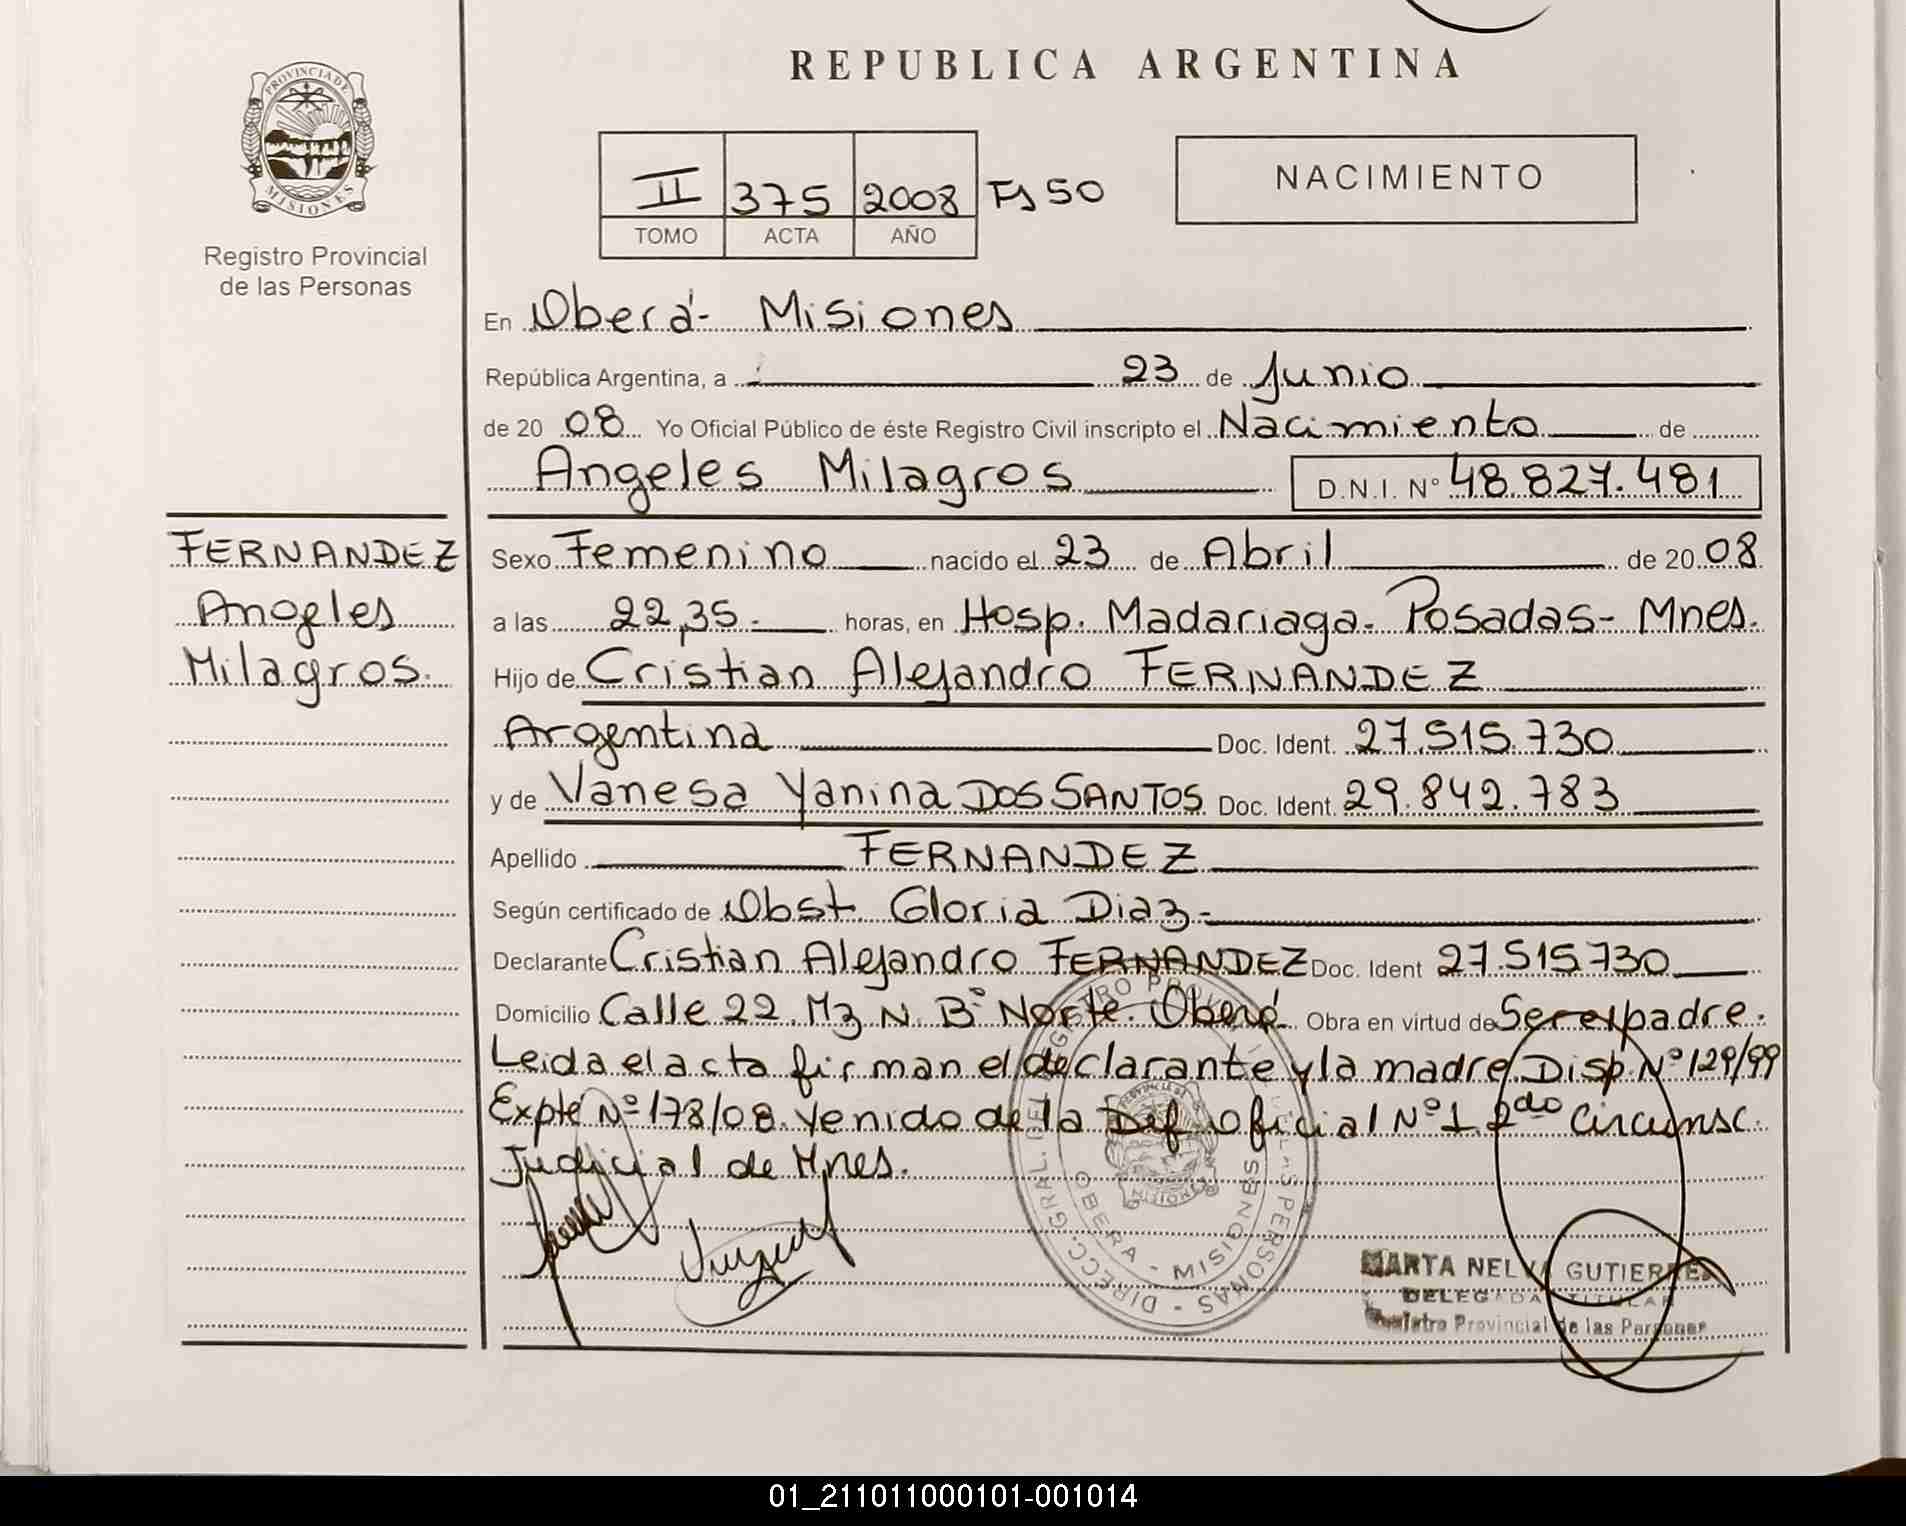 REPUBLICA ARGENTINA
PROVINCIA DE MISIONES
Registro Provincial
de las Personas
II 375 2008 Fs 50
TOMO ACTA AÑO
NACIMIENTO
En Oberá- Misiones
República Argentina, a 23 de Junio
de 20 08 Yo Oficial Público de éste Registro Civil inscripto el Nacimiento de
Angeles Milagros D.N.I. N° 48.827.481
FERNANDEZ
Angeles
Milagros.
Sexo Femenino nacido el 23 de Abril de 20 08
a las 22,35.- horas, en Hosp. Madariaga. Posadas- Mnes.
Hijo de Cristian Alejandro FERNANDEZ
Argentina Doc. Ident. 27.515.730
y de Vanesa Yanina DOS SANTOS Doc. Ident. 29.842.783
Apellido FERNANDEZ
Según certificado de Obst. Gloria Diaz-
Declarante Cristian Alejandro FERNANDEZ Doc. Ident 27.515.730
Domicilio Calle 22. Mz N. B° Norte. Oberá Obra en virtud de Ser el padre.
Leida el acta firman el declarante y la madre Disp. N° 129/99
Expte N° 178/08. Venido de la Def. Oficial N° 1. 2do Circunsc.
Judicial de Mnes.
DIRECC. GRAL. DEL REGISTRO PROVINCIAL DE LAS PERSONAS -
OBERA - MISIONES
MARTA NELVA GUTIERREZ
DELEGADA TITULAR
Registro Provincial de las Personas
01_211011000101-001014